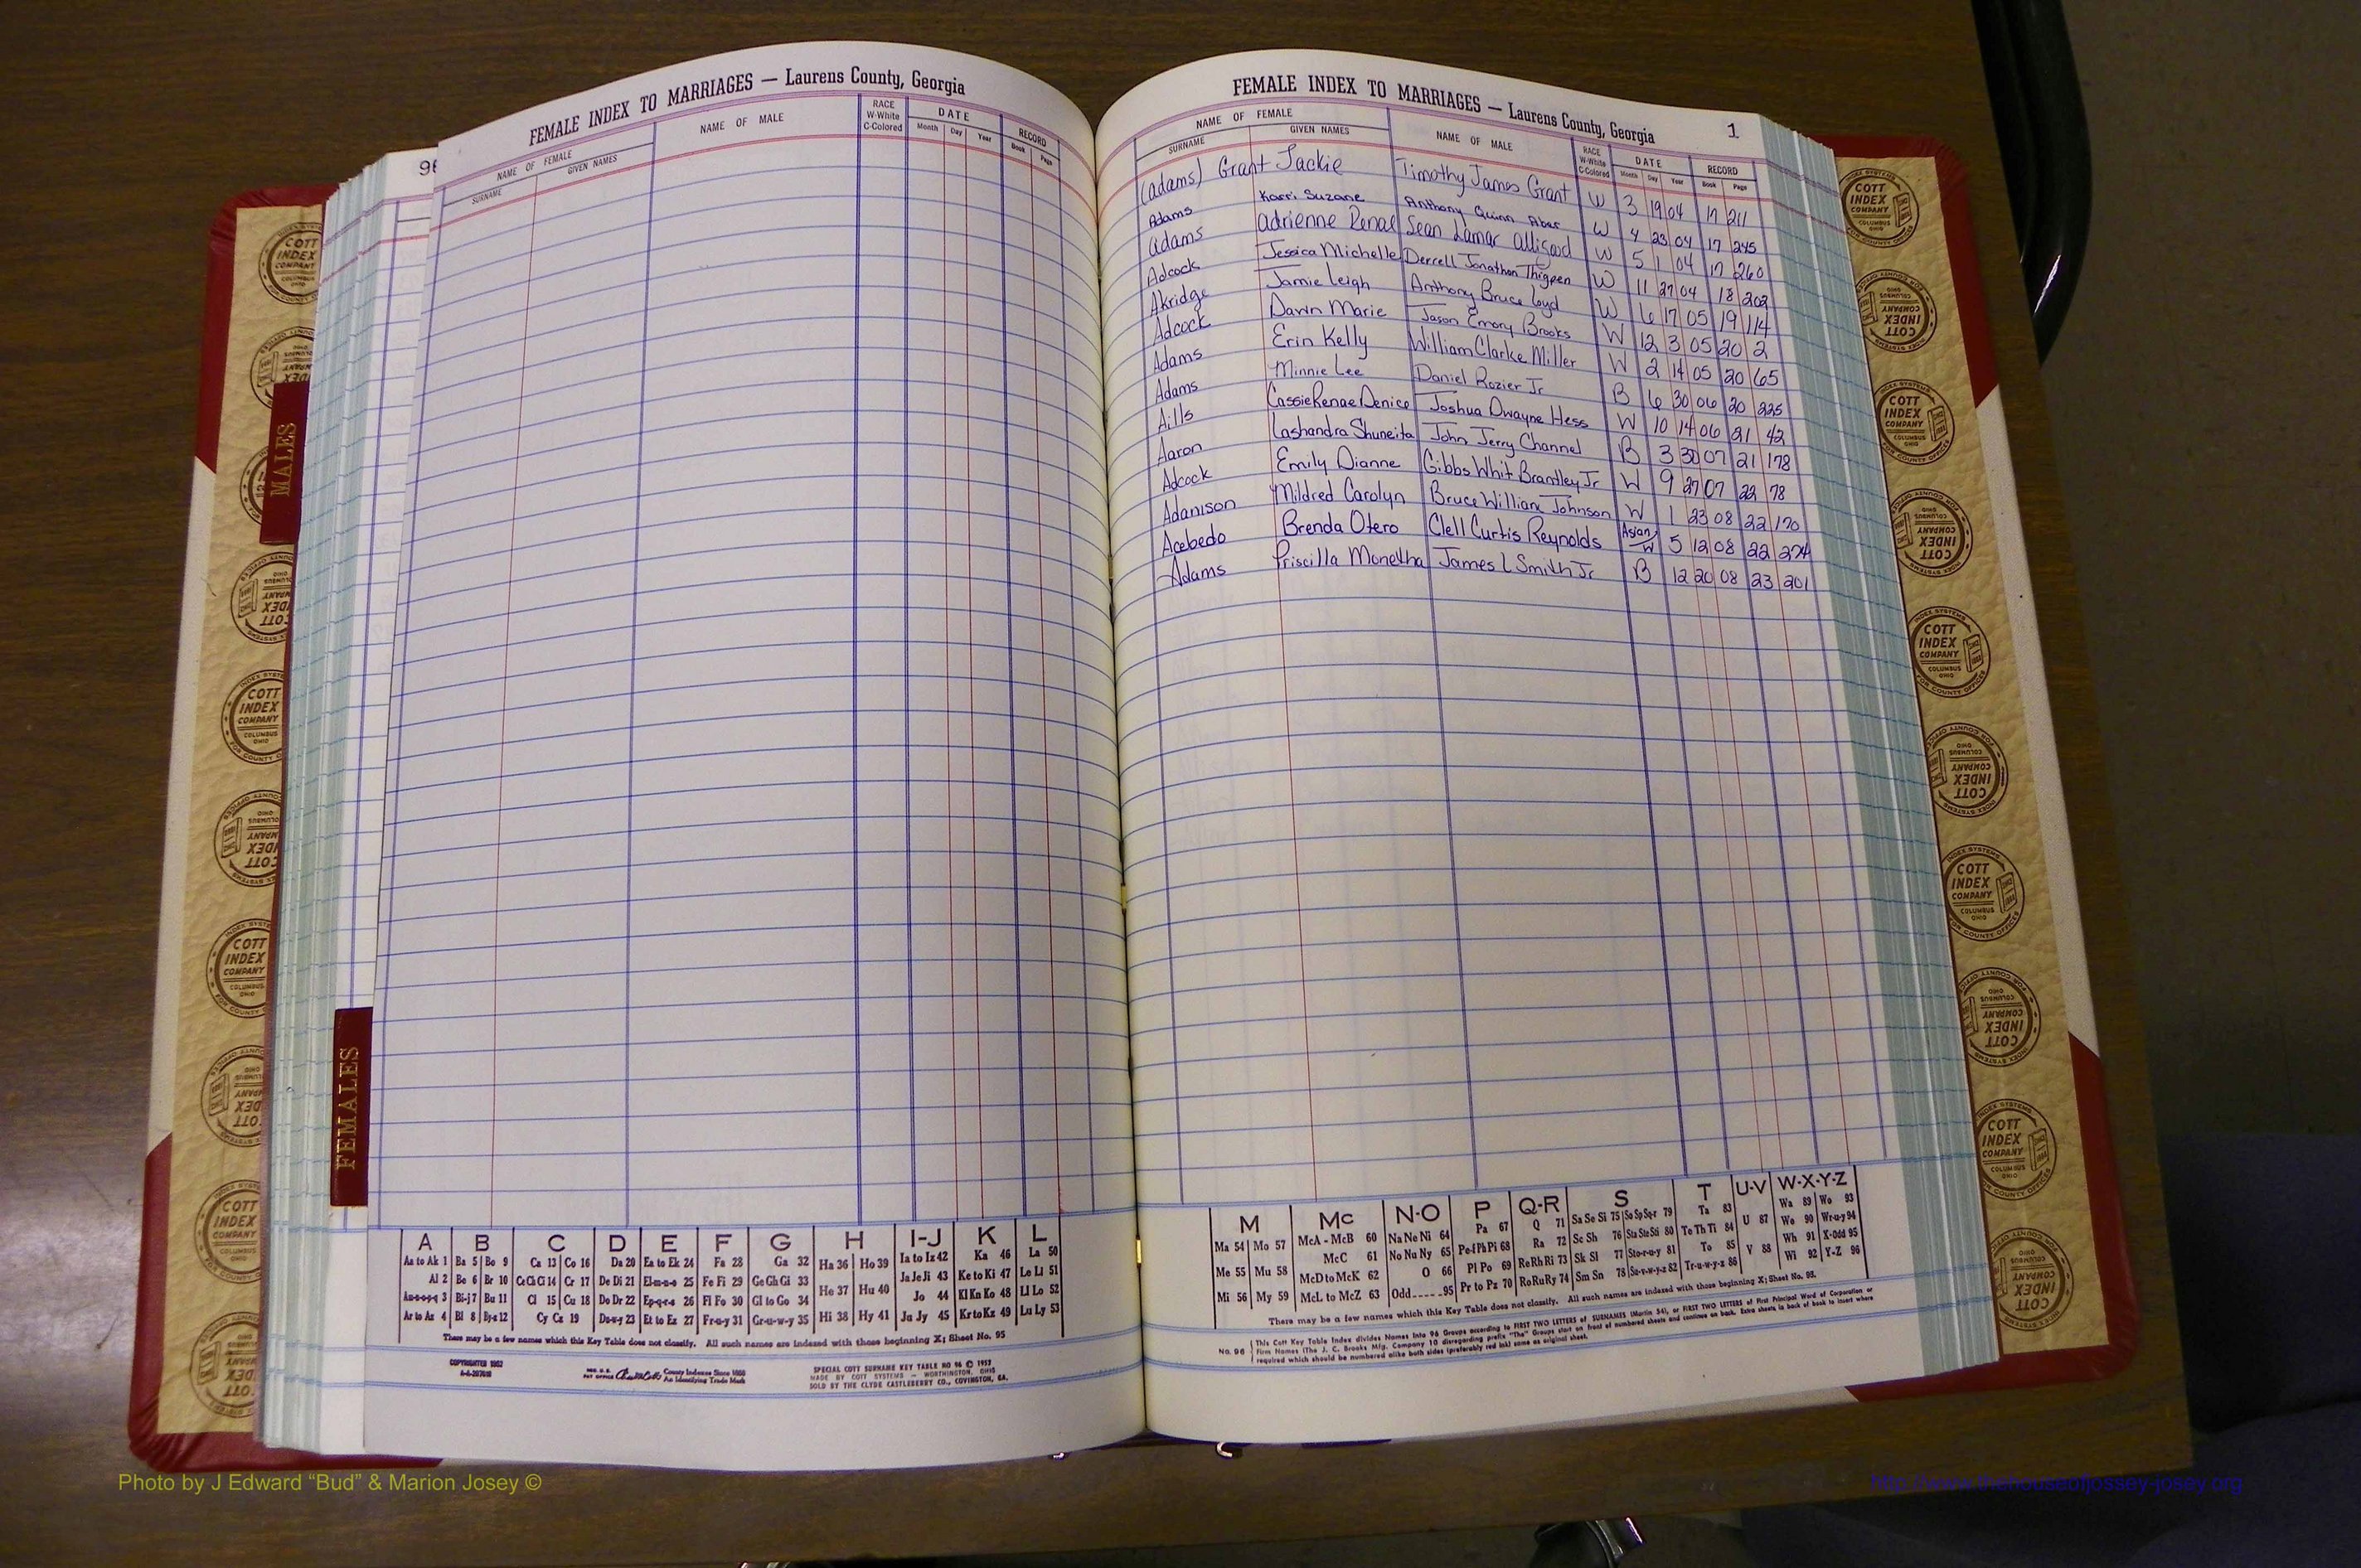 FEMALE INDEX TO MARRIAGES — Laurens County, Georgia
NAME OF FEMALE
SURNAME GIVEN NAMES
NAME OF MALE
RACE
W-White
C-Colored
DATE
Month Day Year
RECORD
Book Page
MALES
FEMALES
A B C D E F G H I-J K L
Aa to Ak 1 Ba 5 Bo 9 Ca 13 Co 16 Da 20 Ea to Ek 24 Fa 28 Ga 32 Ha 36 Ho 39 Ia to Iz 42 Ka 46 La 50
Al 2 Be 6 Br 10 Ce Ch Ci 14 Cr 17 De Di 21 El-m-n-o 25 Fe Fi 29 Ge Gh Gi 33 He 37 Hu 40 Ja Je Ji 43 Ke to Ki 47 Le Li 51
An-n-o-p-q 3 Bi-j 7 Bu 11 Cl 15 Cu 18 Do Dr 22 Ep-q-r-s 26 Fl Fo 30 Gl to Go 34 Jo 44 Kl Kn Ko 48 Ll Lo 52
Ar to Az 4 Bl 8 By-z 12 Cy Cz 19 Du-w-y 23 Et to Ez 27 Fr-u-y 31 Gr-u-w-y 35 Hi 38 Hy 41 Ju Jy 45 Kr to Kz 49 Lu Ly 53
There may be a few names which this Key Table does not classify. All such names are indexed with those beginning X; Sheet No. 95
County Indexes Since 1888
An Identifying Trade Mark
SPECIAL COTT SURNAME KEY TABLE NO 96 © 1957
MADE BY COTT SYSTEMS — WORTHINGTON, OHIO
SOLD BY THE CLYDE CASTLEBERRY CO., COVINGTON, GA.
FEMALE INDEX TO MARRIAGES — Laurens County, Georgia 1
NAME OF FEMALE
SURNAME GIVEN NAMES
NAME OF MALE
RACE
W-White
C-Colored
DATE
Month Day Year
RECORD
Book Page
(Adams) Grant Jackie Timothy James Grant W 3 19 04 17 211
Adams Karri Suzane Anthony Quinn Aber W 4 23 04 17 245
Adams Adrienne Renal Sean Lamar Alligood W 5 1 04 17 260
Adcock Jessica Michelle Derrell Jonathon Thigpen W 11 27 04 18 202
Akridge Jamie Leigh Anthony Bruce Loyd W 6 17 05 19 114
Adcock Dawn Marie Jason Emory Brooks W 12 3 05 20 2
Adams Erin Kelly William Clarke Miller W 2 14 05 20 65
Adams Minnie Lee Daniel Rozier Jr B 6 30 06 20 225
Aills Cassie Renae Denice Joshua Dwayne Hess W 10 14 06 21 42
Aaron Lashandra Shuneita John Jerry Channel B 3 30 07 21 178
Adcock Emily Dianne Gibbs Whit Brantley Jr W 9 27 07 22 78
Adamson Mildred Carolyn Bruce William Johnson W 1 23 08 22 170
Acebedo Brenda Otero Clell Curtis Reynolds Asian/W 5 12 08 22 274
Adams Priscilla Monetha James L Smith Jr B 12 20 08 23 201
M Mc N-O P Q-R S T U-V W-X-Y-Z
Ma 54 Mo 57 McA - McB 60 Na Ne Ni 64 Pa 67 Q 71 Sa Se Si 75 So Sp Sq-r 79 Ta 83 U 87 Wa 89 Wo 93
Me 55 Mu 58 McC 61 No Nu Ny 65 Pe-f Ph Pi 68 Ra 72 Sc Sh 76 Sta Ste Sti 80 Te Th Ti 84 We 90 Wr-u-y 94
McD to McK 62 O 66 Pl Po 69 Re Rh Ri 73 Sk Sl 77 Sto-r-u-y 81 To 85 V 88 Wh 91 X-Odd 95
Mi 56 My 59 McL to McZ 63 Odd-----95 Pr to Pz 70 Ro Ru Ry 74 Sm Sn 78 Su-v-w-y-z 82 Tr-u-w-y-z 86 Wi 92 Y-Z 96
There may be a few names which this Key Table does not classify. All such names are indexed with those beginning X; Sheet No. 95.
No. 96
This Cott Key Table Index divides Names into 96 Groups according to FIRST TWO LETTERS of SURNAMES (Martin 54), or FIRST TWO LETTERS of First Principal Word of Corporation or
Firm Names (The J. C. Brooks Mfg. Company 10 disregarding prefix "The" Groups start on front of numbered sheets and continue on back. Extra sheets in back of book to insert where
required which should be numbered alike both sides (preferably red ink) same as original sheet.
COTT
INDEX
COMPANY
COLUMBUS
OHIO
INDEX SYSTEMS
FOR COUNTY OFFICES
Photo by J Edward “Bud” & Marion Josey ©
http://www.thehouseofjossey-josey.org